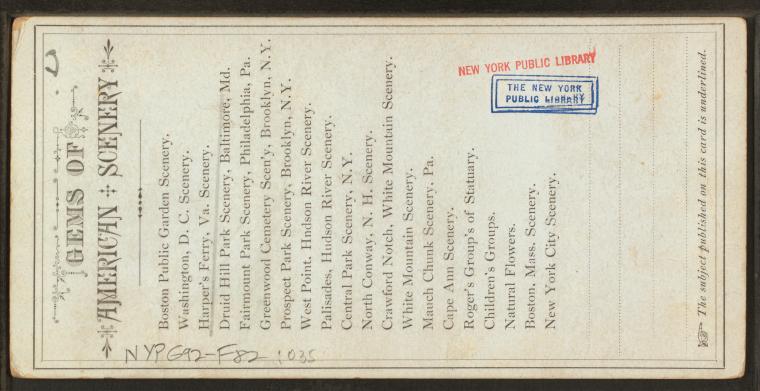 GEMS OF
AMERICAN SCENERY
Boston Public Garden Scenery.
Washington, D. C. Scenery.
Harper's Ferry, Va. Scenery.
Druid Hill Park Scenery, Baltimore, Md.
Fairmount Park Scenery, Philadelphia, Pa.
Greenwood Cemetery Scen'y, Brooklyn, N.Y.
Prospect Park Scenery, Brooklyn, N.Y.
West Point, Hndson River Scenery.
Palisades, Hudson River Scenery.
Central Park Scenery, N. Y.
North Conway, N. H. Scenery.
Crawford Notch, White Mountain Scenery.
White Mountain Scenery.
Mauch Chunk Scenery, Pa.
Cape Ann Scenery.
Roger's Group's of Statuary.
Children's Groups.
Natural Flowers.
Boston, Mass. Scenery.
New York City Scenery.
The subject published on this card is underlined.
NEW YORK PUBLIC LIBRARY
THE NEW YORK
PUBLIC LIBRARY
NYPG92-F82 1035